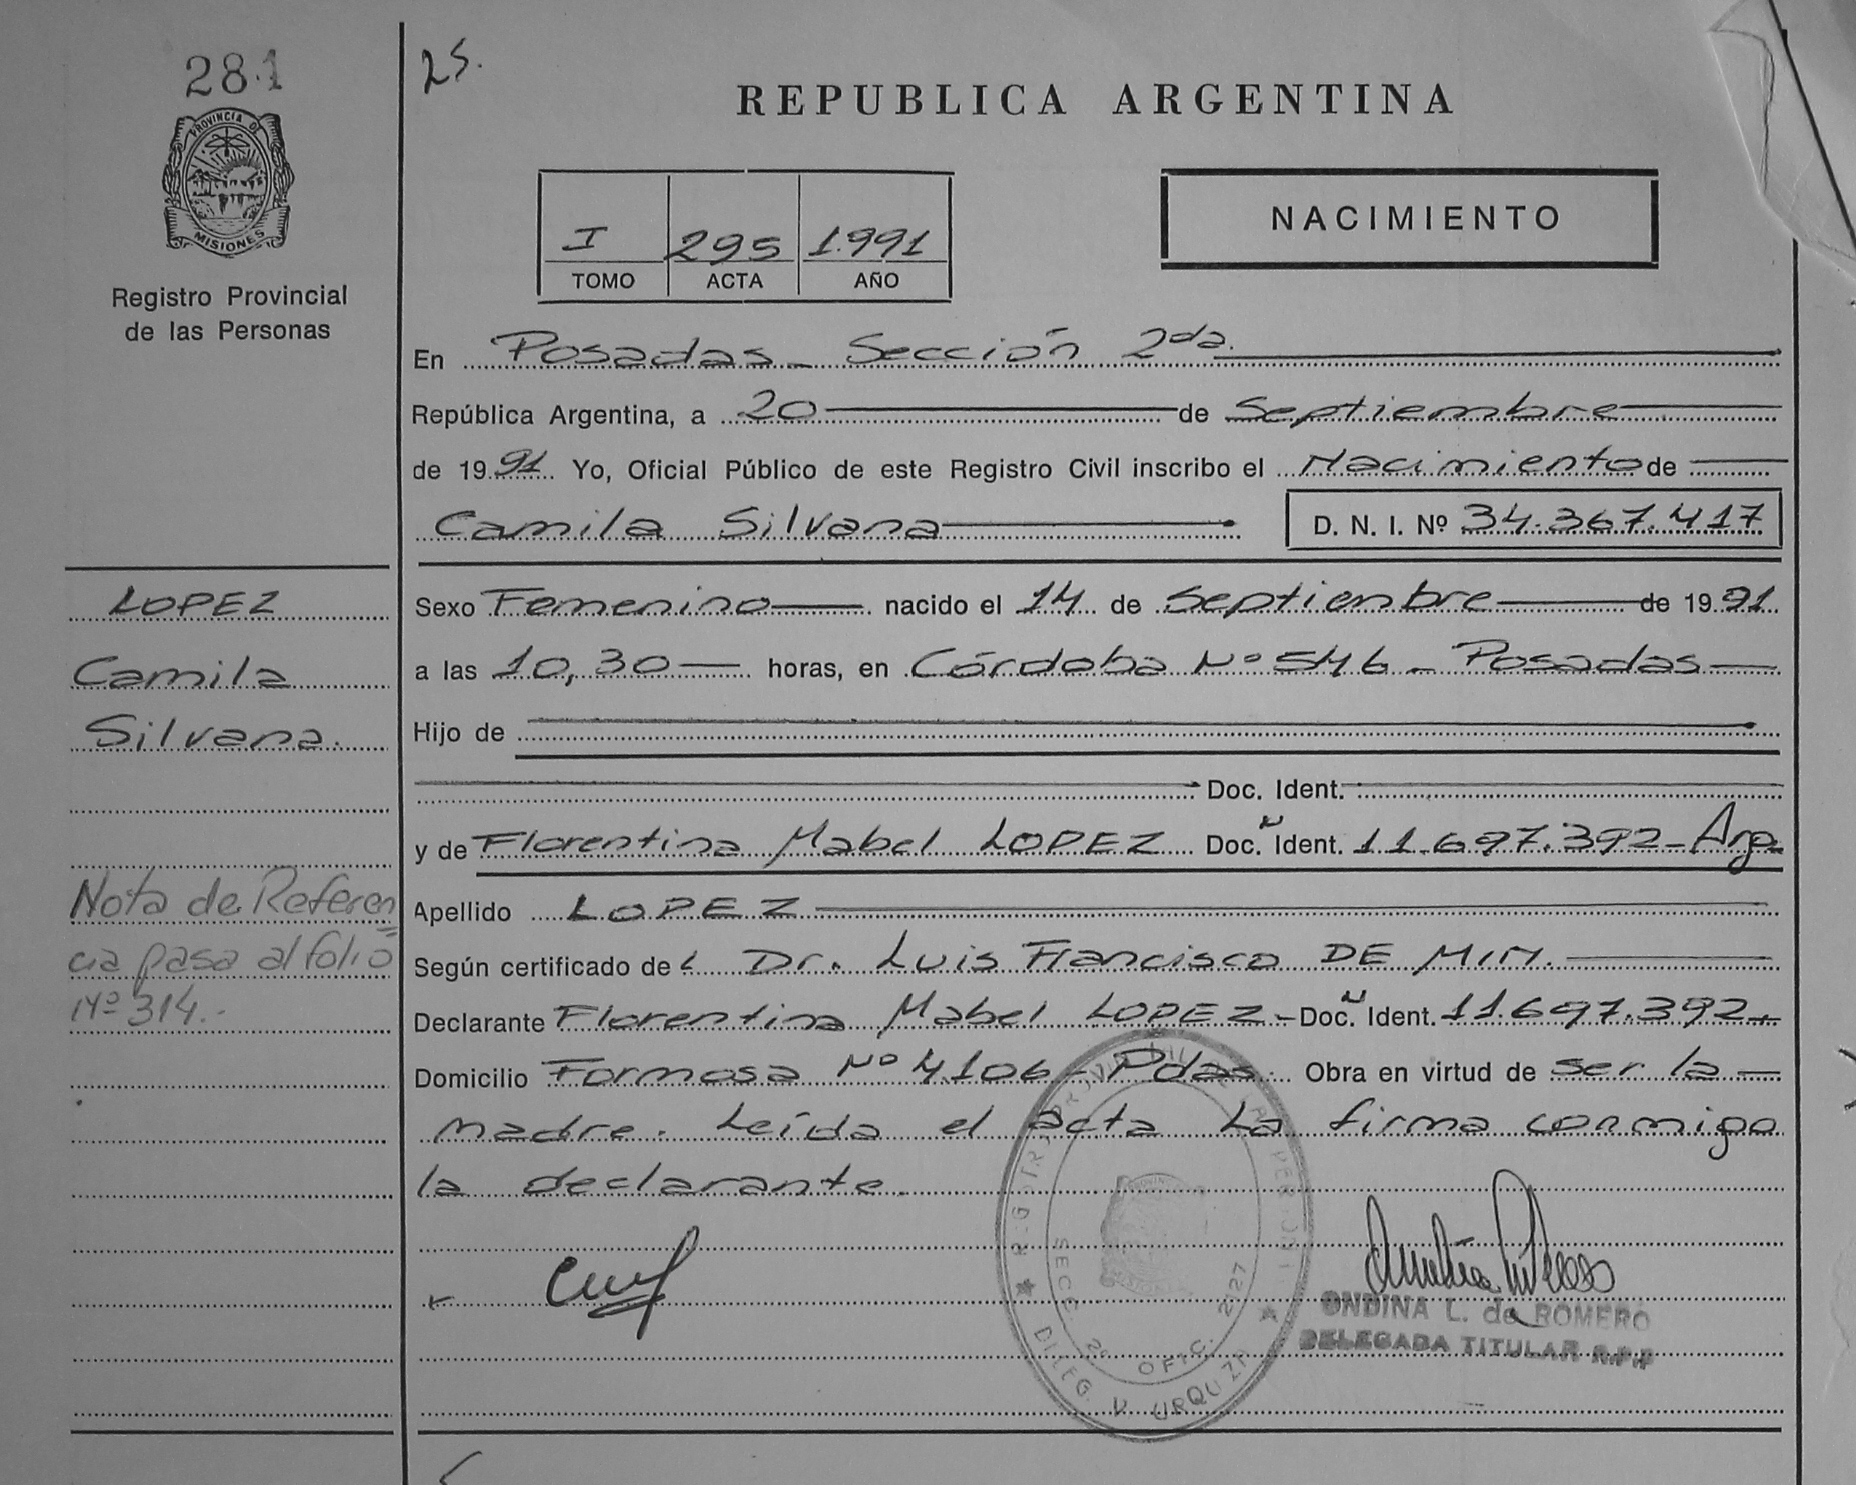 281
25.
PROVINCIA DE
MISIONES
Registro Provincial
de las Personas
REPUBLICA ARGENTINA
I 295 1.991
TOMO ACTA AÑO
NACIMIENTO
En Posadas_ Sección 2da.
República Argentina, a 20 de Septiembre
de 19 91 Yo, Oficial Público de este Registro Civil inscribo el Nacimiento de
Camila Silvana D. N. I. Nº 34.367.417
Sexo Femenino nacido el 14 de Septienbre de 19 91
a las 10,30 horas, en Córdoba Nº 546 - Posadas
Hijo de
Doc. Ident.
y de Florentina Mabel LOPEZ Doc. Ident. 11.697.392- Arg.
Apellido LOPEZ
Según certificado de L Dr. Luis Francisco DE MIM.
Declarante Florentina Mabel LOPEZ - Doc. Ident. 11.697.392-
Domicilio Formosa Nº 4106 - Pdas. Obra en virtud de ser la
madre. Leída el acta La firma conmigo
la declarante.
LOPEZ
Camila
Silvana.
Nota de Referen
cia pasa al folio
Nº 314.-
ONDINA L. de ROMERO
DELEGADA TITULAR R.P.P
SECC. 2º OFIC. 2127
DELEG. V. URQUIZA